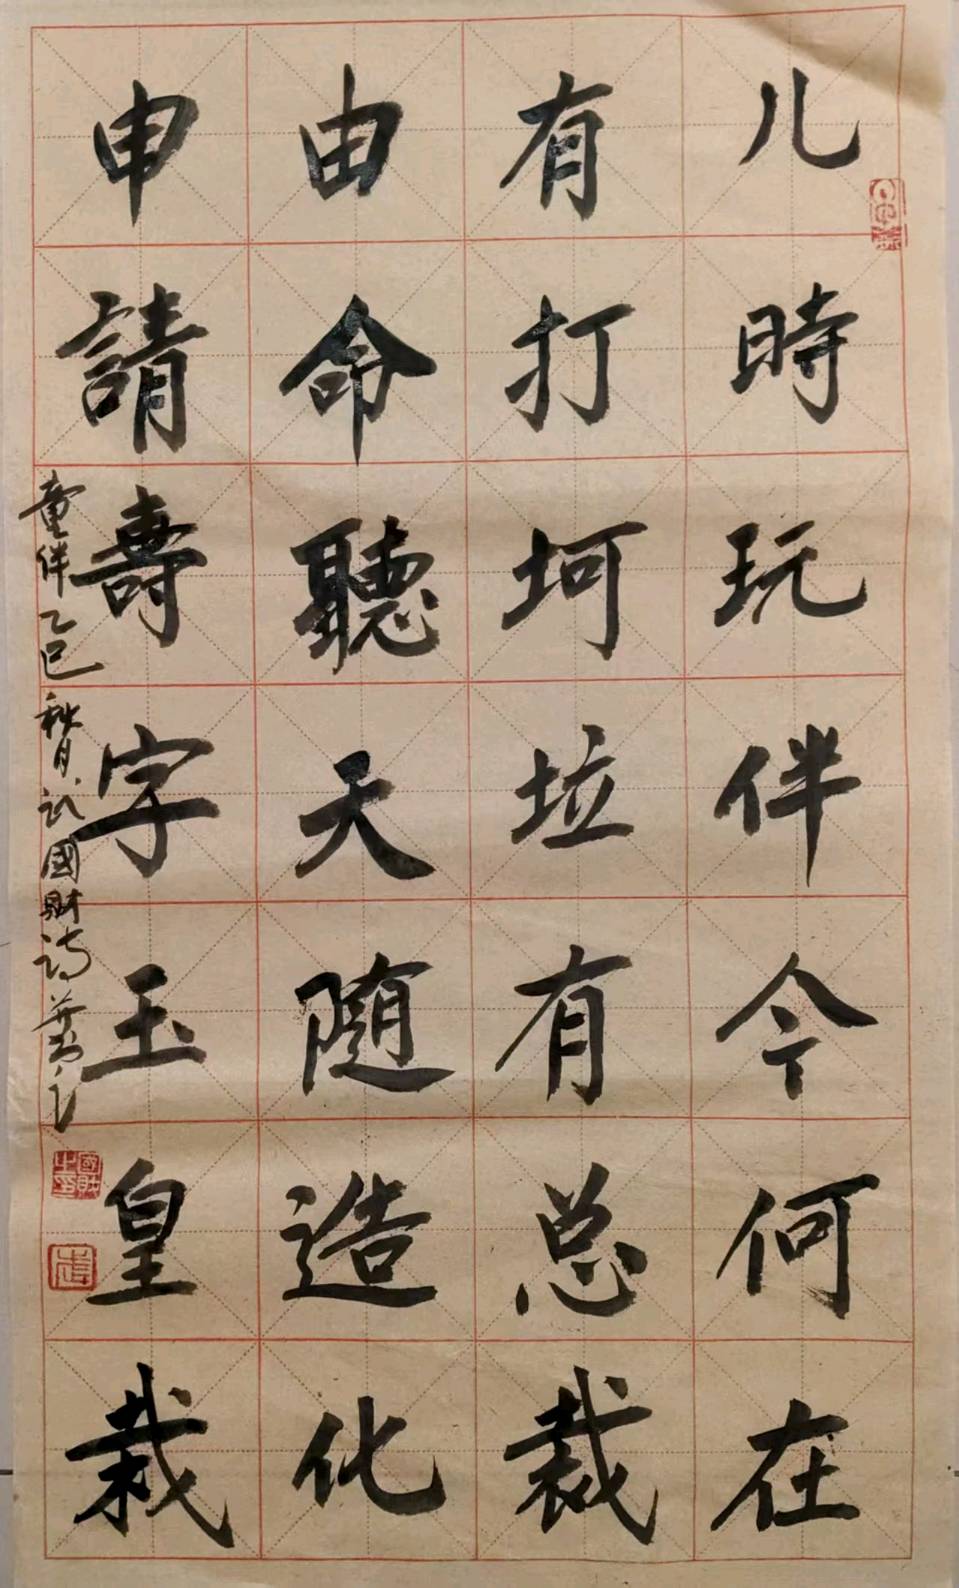 儿時玩伴今何在
有打坷垃有总裁
由命聽天随造化
申請壽字玉皇栽
童伴乙巳秋月武國財詩並書